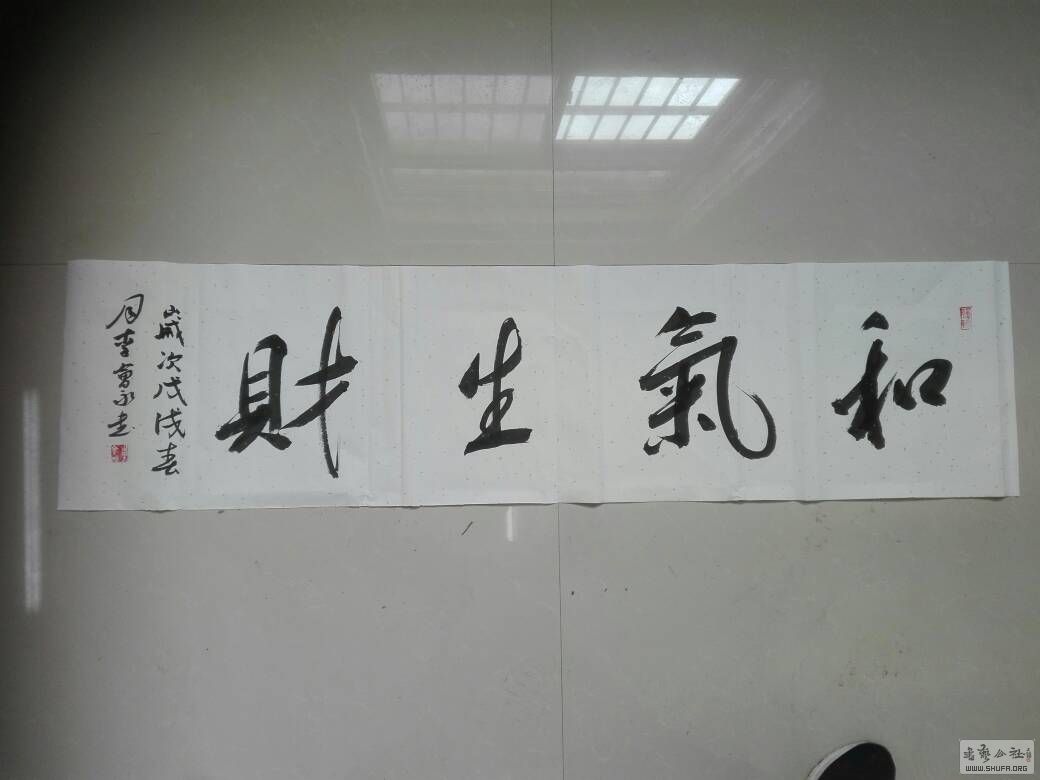 和氣生財
歲次戊戌春
月李會永書
書藝公社
WWW.SHUFA.ORG